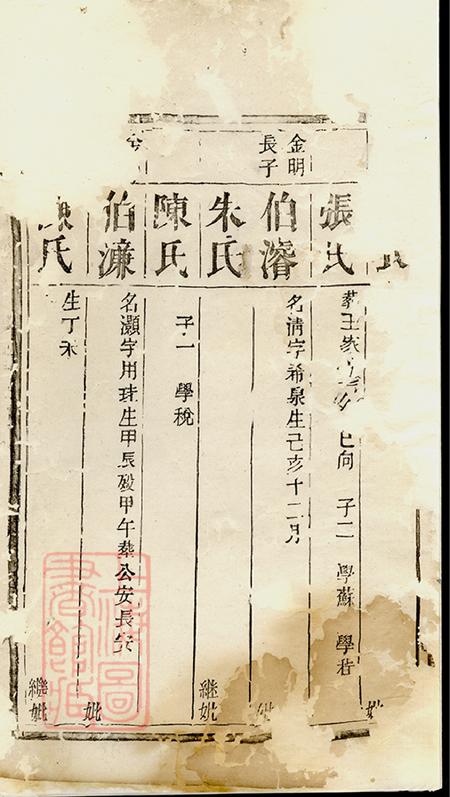 氏
妣
張氏
巳向 子二 學蘇
金明
長子
伯濬
名清字希泉生己亥十二月
妣
朱氏
继妣
陳氏
子一 學稅
伯濂
名灝字用珠生甲辰殁甲午葬公安長安
妣
陳氏
生丁未
繼妣